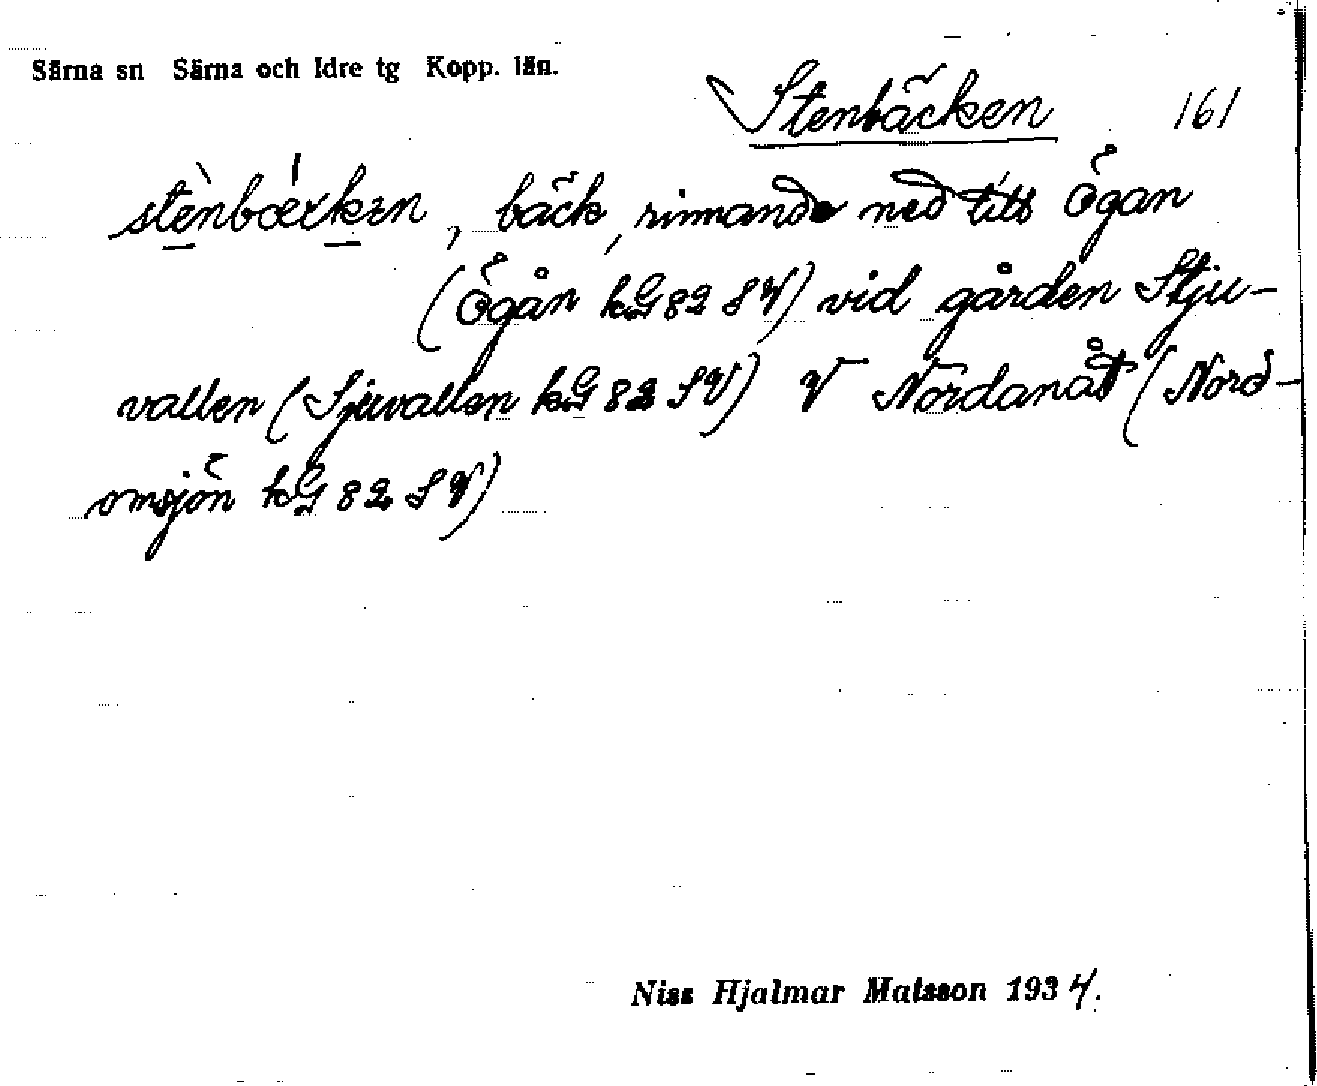 Särna sn Särna och Idre tg Kopp. län.
Stenbäcken 161
stènbæ̀kken, bäck, rinnande ned till Ögan
(Ögån kG 82 SV) vid gården Stju-
vallen (Sjuvallen kG 82 SV) V Nordanåt (Nord-
omsjön kG 82 SV)
Niss Hjalmar Matsson 1934.